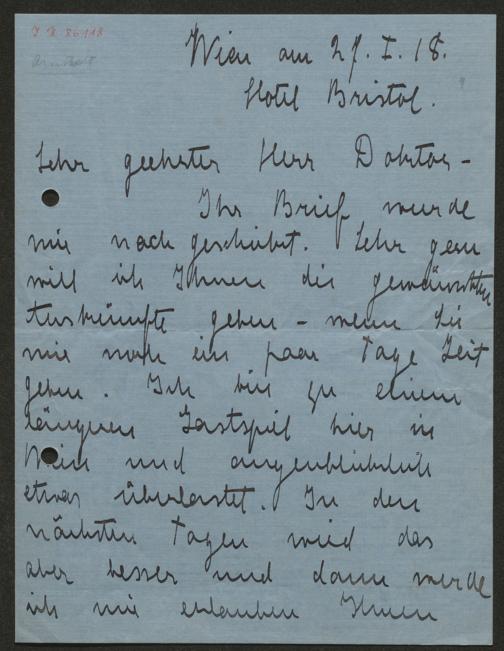 Wien am 27. I. 18.
Hotel Bristol.
Sehr geehrter Herr Doktor –
Ihr Brief wurde
mir nach geschickt. Sehr gern
will ich Ihnen die gewünschten
Auskünfte geben – wenn Sie
mir noch ein paar Tage Zeit
geben. Ich bin zu einem
längeren Gastspiel hier in
Wien und augenblicklich
etwas überlastet. In den
nächsten Tagen wird das
aber besser und dann werde
ich mir erlauben Ihnen